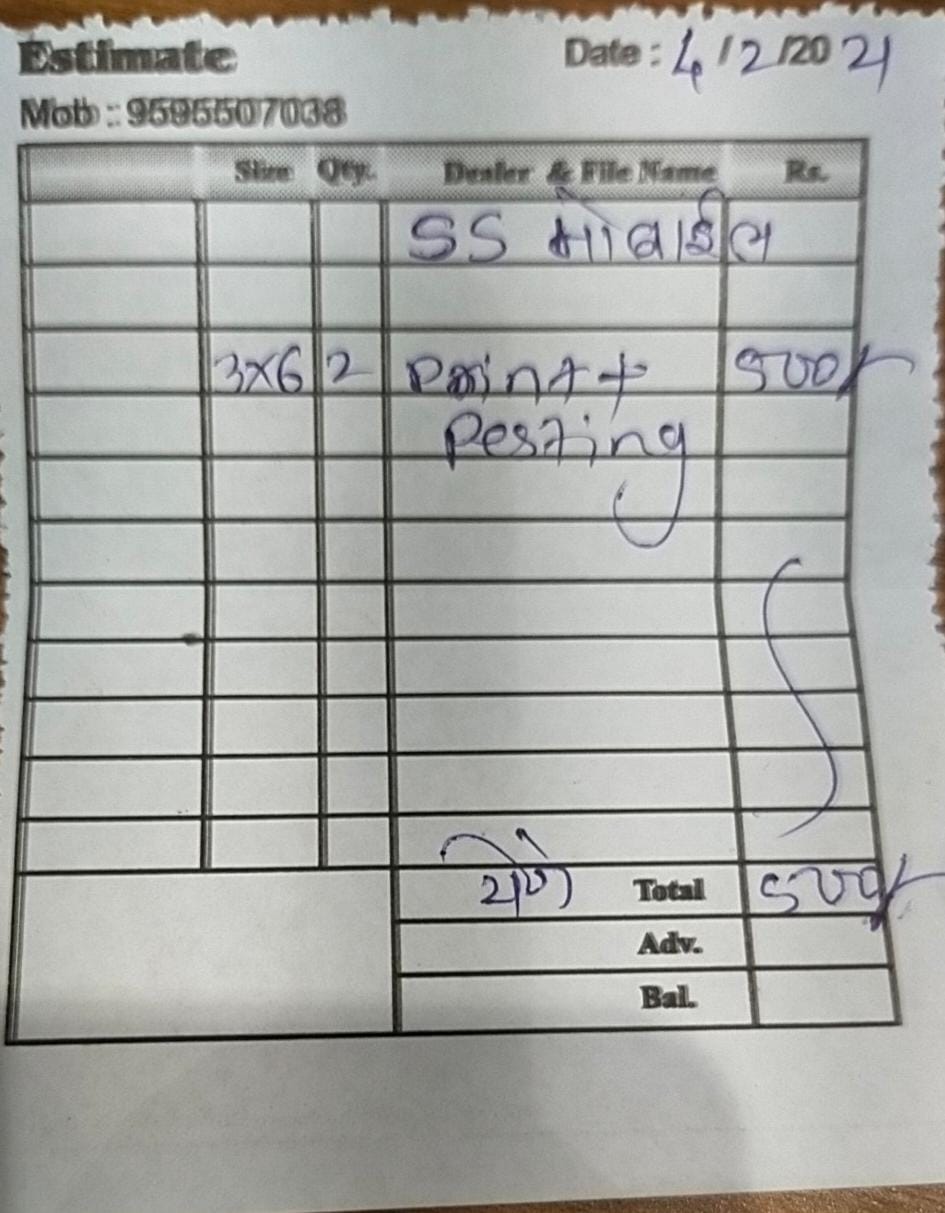 Estimate Date : 4/2/2021
Mob : 9595507038
Size Qty. Dealer & File Name Rs.
SS मोबाईल
3x6 2 Print + 500/-
Pesting
Total 500/-
Adv.
Bal.